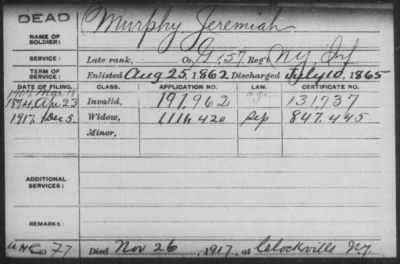 DEAD
NAME OF
SOLDIER:
Murphy Jeremiah
SERVICE:
Late rank, Co. G, 157 Reg't N.Y. Inf
TERM OF
SERVICE:
Enlisted Aug 25, 1862, Discharged July 10, 1865
DATE OF FILING. CLASS. APPLICATION NO. LAW. CERTIFICATE NO.
1907 Mar 11
1874, Apr 23 Invalid, 191,962 131,737
1917, Dec 5. Widow, 1111 420 Sep 847.445
Minor,
ADDITIONAL
SERVICES:
REMARKS:
Died Nov 26, 1917, at Clockville N.Y.